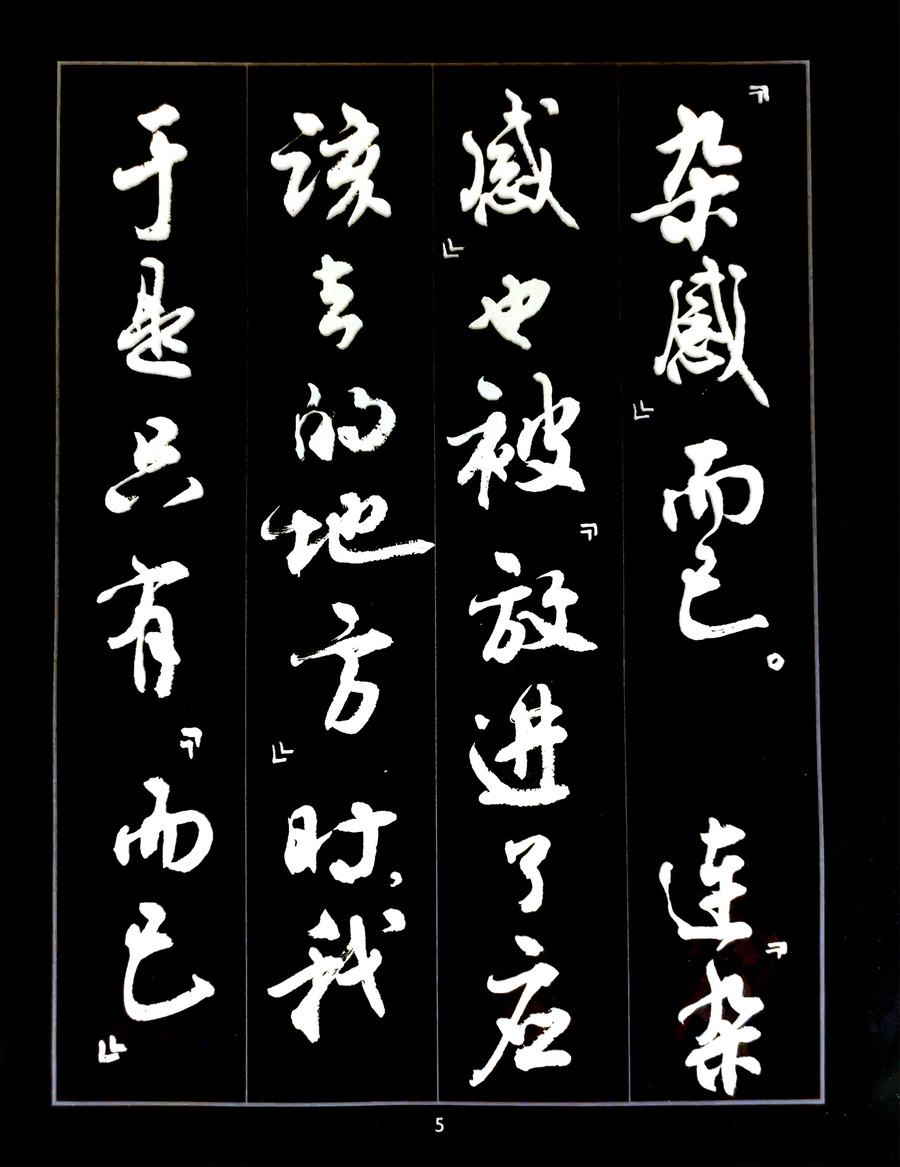 『杂感』而已。连『杂
感』也被『放进了应
该去的地方』时，我
于是只有『而已』
5